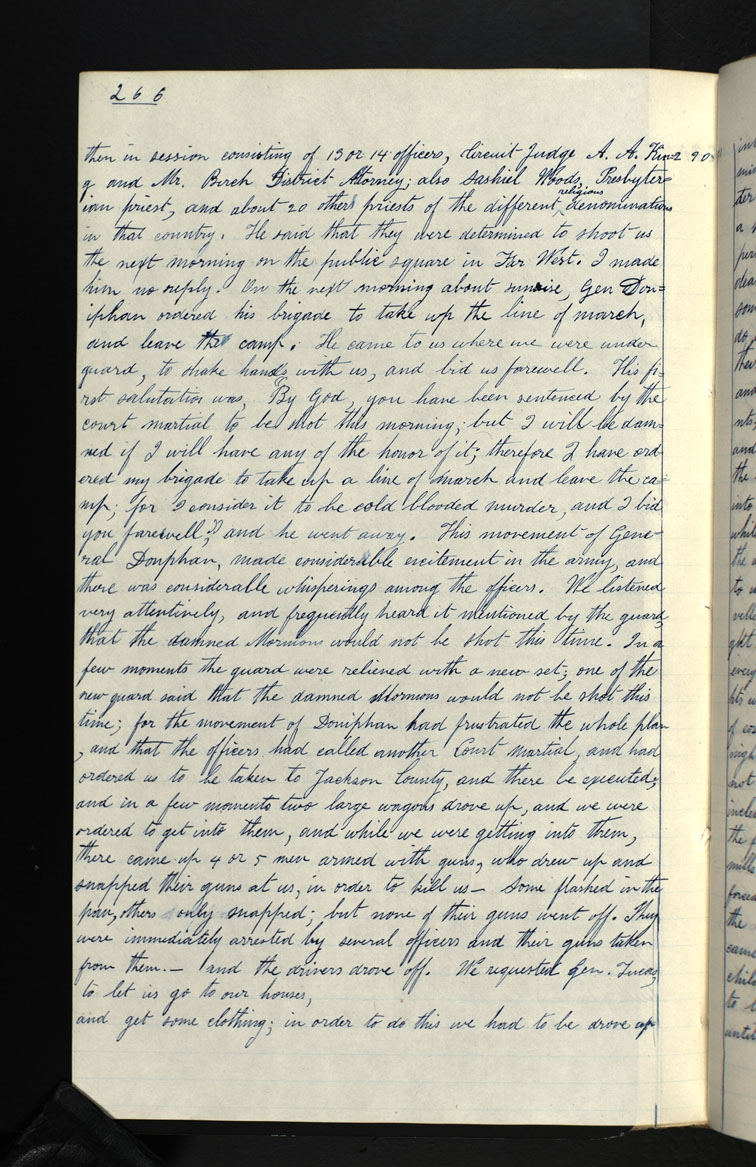 266
then in session consisting of 13 or 14 officers, Circuit Judge A. A. Kin=
g and Mr. Birch District Attorney; also Sashiel Woods, Presbyter=
ian priest, and about 20 other priests of the different religious denominations
in that country. He said that they were determined to shoot us
the next morning on the public square in Far West. I made
him no reply. On the next morning about sunrise, Gen Don=
iphan ordered his brigade to take up the line of march,
and leave the camp. He came to us where we were under
guard, to shake hands with us, and bid us farewell. His fi-
rst salutation was, "By God, you have been sentenced by the
court martial to be shot this morning; but I will be dam-
ned if I will have any of the honor of it; therefore I have ord-
ered my brigade to take up a line of march and leave the ca-
mp; for I consider it to be cold blooded murder, and I bid
you farewell;" and he went away. This movement of Gene-
ral Doniphan, made considerable excitement in the army, and
there was considerable whisperings among the officers. We listened
very attentively, and frequently heard it mentioned by the guard,
that the damned Mormons would not be shot this time. In a
few moments the guard were relieved with a new set; one of the
new guard said that the damned Mormons would not be shot this
time; for the movement of Doniphan had frustrated the whole plan
, and that the officers had called another Court martial, and had
ordered us to be taken to Jackson County, and there be executed;
and in a few moments two large wagons drove up, and we were
ordered to get into them, and while we were getting into them,
there came up 4 or 5 men armed with guns, who drew up and
snapped their guns at us, in order to kill us— Some flashed in the
pan, others only snapped; but none of their guns went off. They
were immediately arrested by several officers and their guns taken
from them.— and the drivers drove off. We requested Gen. Lucas,
to let us go to our houses,
and get some clothing; in order to do this we had to be drove up